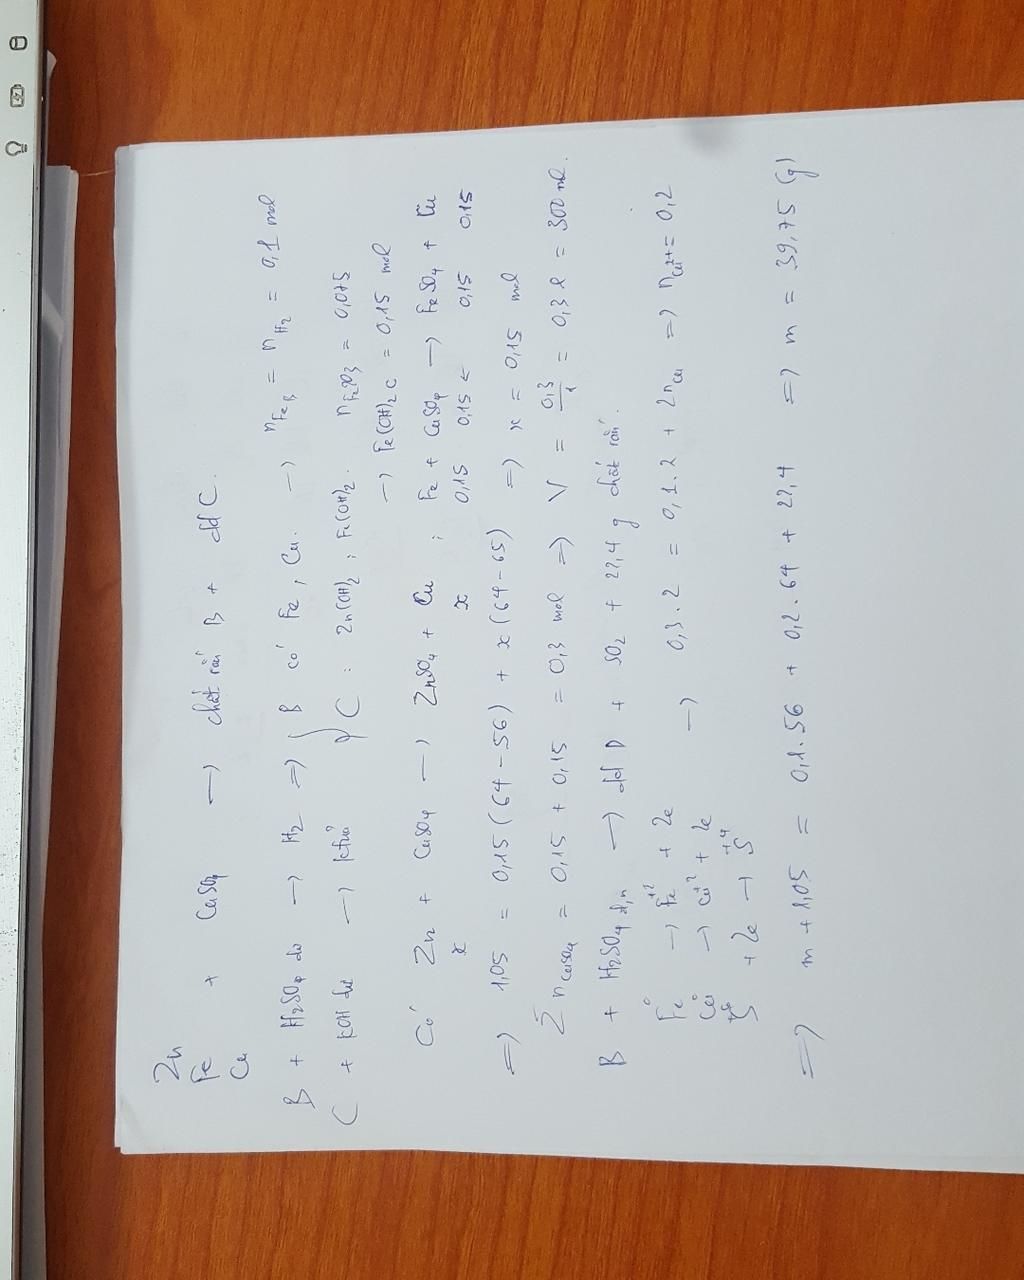 Zn
Fe + CuSO4 → chất rắn B + dd C.
Cu
B + H2SO4 dư → H2 ⇒ { B có Fe, Cu. → nFeB = nH2 = 0,1 mol
C + KOH dư → kết tủa C : Zn(OH)2 ; Fe(OH)2. nFe2O3 = 0,075
→ Fe(OH)2 C = 0,15 mol
Có Zn + CuSO4 → ZnSO4 + Cu ; Fe + CuSO4 → FeSO4 + Cu
x x 0,15 0,15 ← 0,15 0,15
⇒ 1,05 = 0,15(64-56) + x(64-65) ⇒ x = 0,15 mol
Σ nCuSO4 = 0,15 + 0,15 = 0,3 mol ⇒ V = 0,3/1 = 0,3 l = 300 ml.
B + H2SO4 đ,n → dd D + SO2 + 22,4 g chất rắn.
Fe⁰ → Fe⁺² + 2e
Cu⁰ → Cu⁺² + 2e → 0,3.2 = 0,1.2 + 2nCu ⇒ nCu2+ = 0,2
S⁺⁶ + 2e → S⁺⁴
⇒ m + 1,05 = 0,1.56 + 0,2.64 + 22,4 ⇒ m = 39,75 (g)